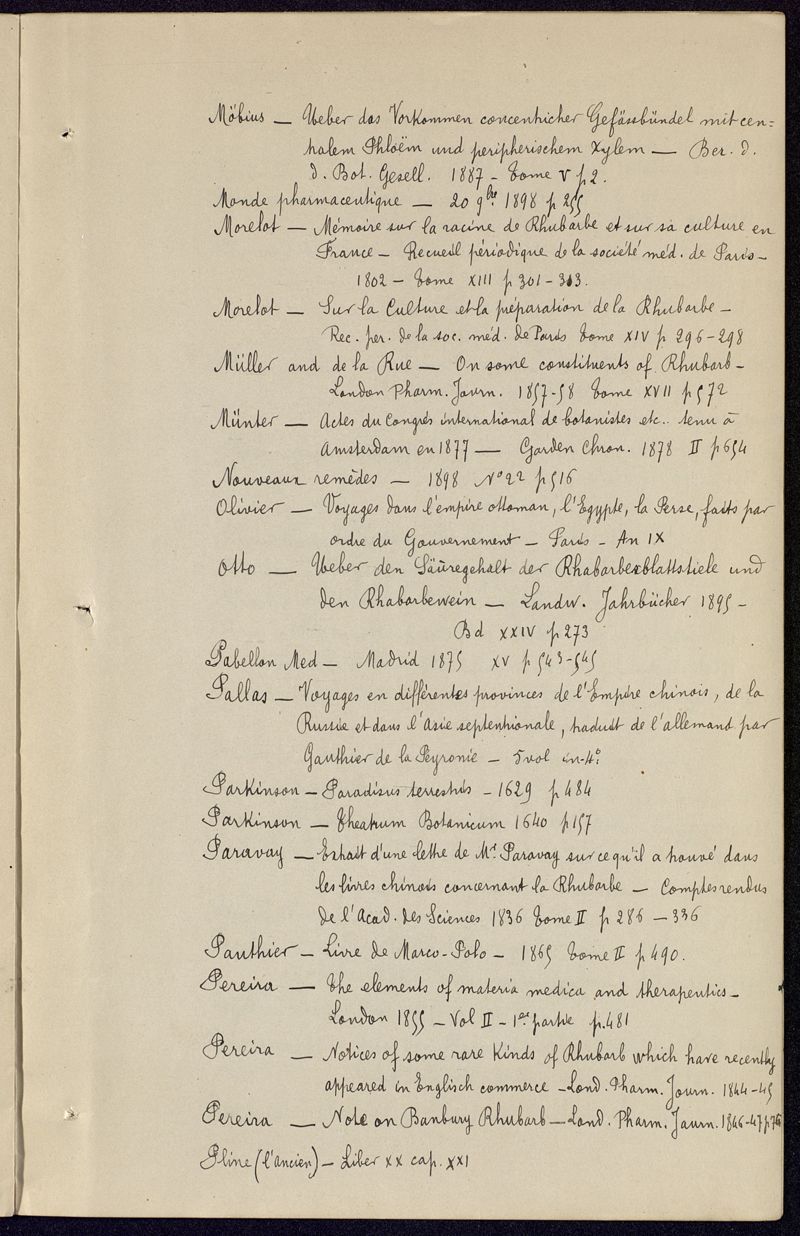 Möbius — Ueber das Vorkommen concentricher Gefässbündel mit cen=
tralem Phloëm und peripherischem Xylem — Ber. d.
d. Bot. Gesell. 1887 - Tome V p 2.
Monde pharmaceutique — 20 9bre 1898 p 255
Morelot — Mémoire sur la racine de Rhubarbe et sur sa culture en
France — Recueil périodique de la société méd. de Paris —
1802 — Tome XIII p 301 - 313.
Morelot — Sur la Culture et la préparation de la Rhubarbe —
Rec. per. de la soc. méd. de Paris Tome XIV p 296-298
Müller and de la Rue — On some constituents of Rhubarb —
London Pharm. Journ. 1857-58 Tome XVII p 572
Münter — Actes du Congrés international de botanistes etc.. tenu à
Amsterdam en 1877 — Garden Chron. 1878 II p 654
Nouveaux remèdes — 1898 No 22 p 516
Olivier — Voyages dans l'empire ottoman, l'Egypte, la Perse, faits par
ordre du Gouvernement — Paris - An IX
Otto — Ueber den Säuregehalt der Rhabarberblattstiele und
den Rhabarbewein — Landw. Jahrbücher 1895 —
Bd XXIV p 273
Pabellon Med — Madrid 1875 XV p 543-545
Pallas — Voyages en différentes provinces de l'Empire chinois, de la
Russie et dans l'Asie septentrionale, traduit de l'allemand par
Gauthier de la Peyronie — 5 vol in-4°
Parkinson — Paradisus terrestris - 1629 p 484
Parkinson — Theatrum Botanicum 1640 p 157
Paravay — Extrait d'une lettre de Mr Paravay sur ce qu'il a trouvé dans
les livres chinois concernant la Rhubarbe — Comptes rendus
de l'Acad. des Sciences 1836 Tome II p 286 — 336
Pauthier — Livre de Marco-Polo — 1865 Tome II p 490.
Pereira — The elements of materia medica and therapeutics —
London 1855 — Vol II - 1ere partie p. 481
Pereira — Notices of some rare Kinds of Rhubarb which have recently
appeared in Englisch commerce — Lond. Pharm. Journ. 1844-45
Pereira — Note on Banbury Rhubarb — Lond. Pharm. Journ. 1846-47 p
Pline (l'ancien) — Liber XX cap. XXI